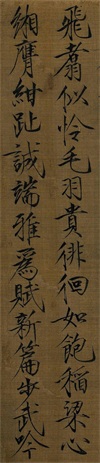 飛翥似怜毛羽貴徘徊如飽稻粱心
緗膺紺趾誠端雅為賦新篇步武吟